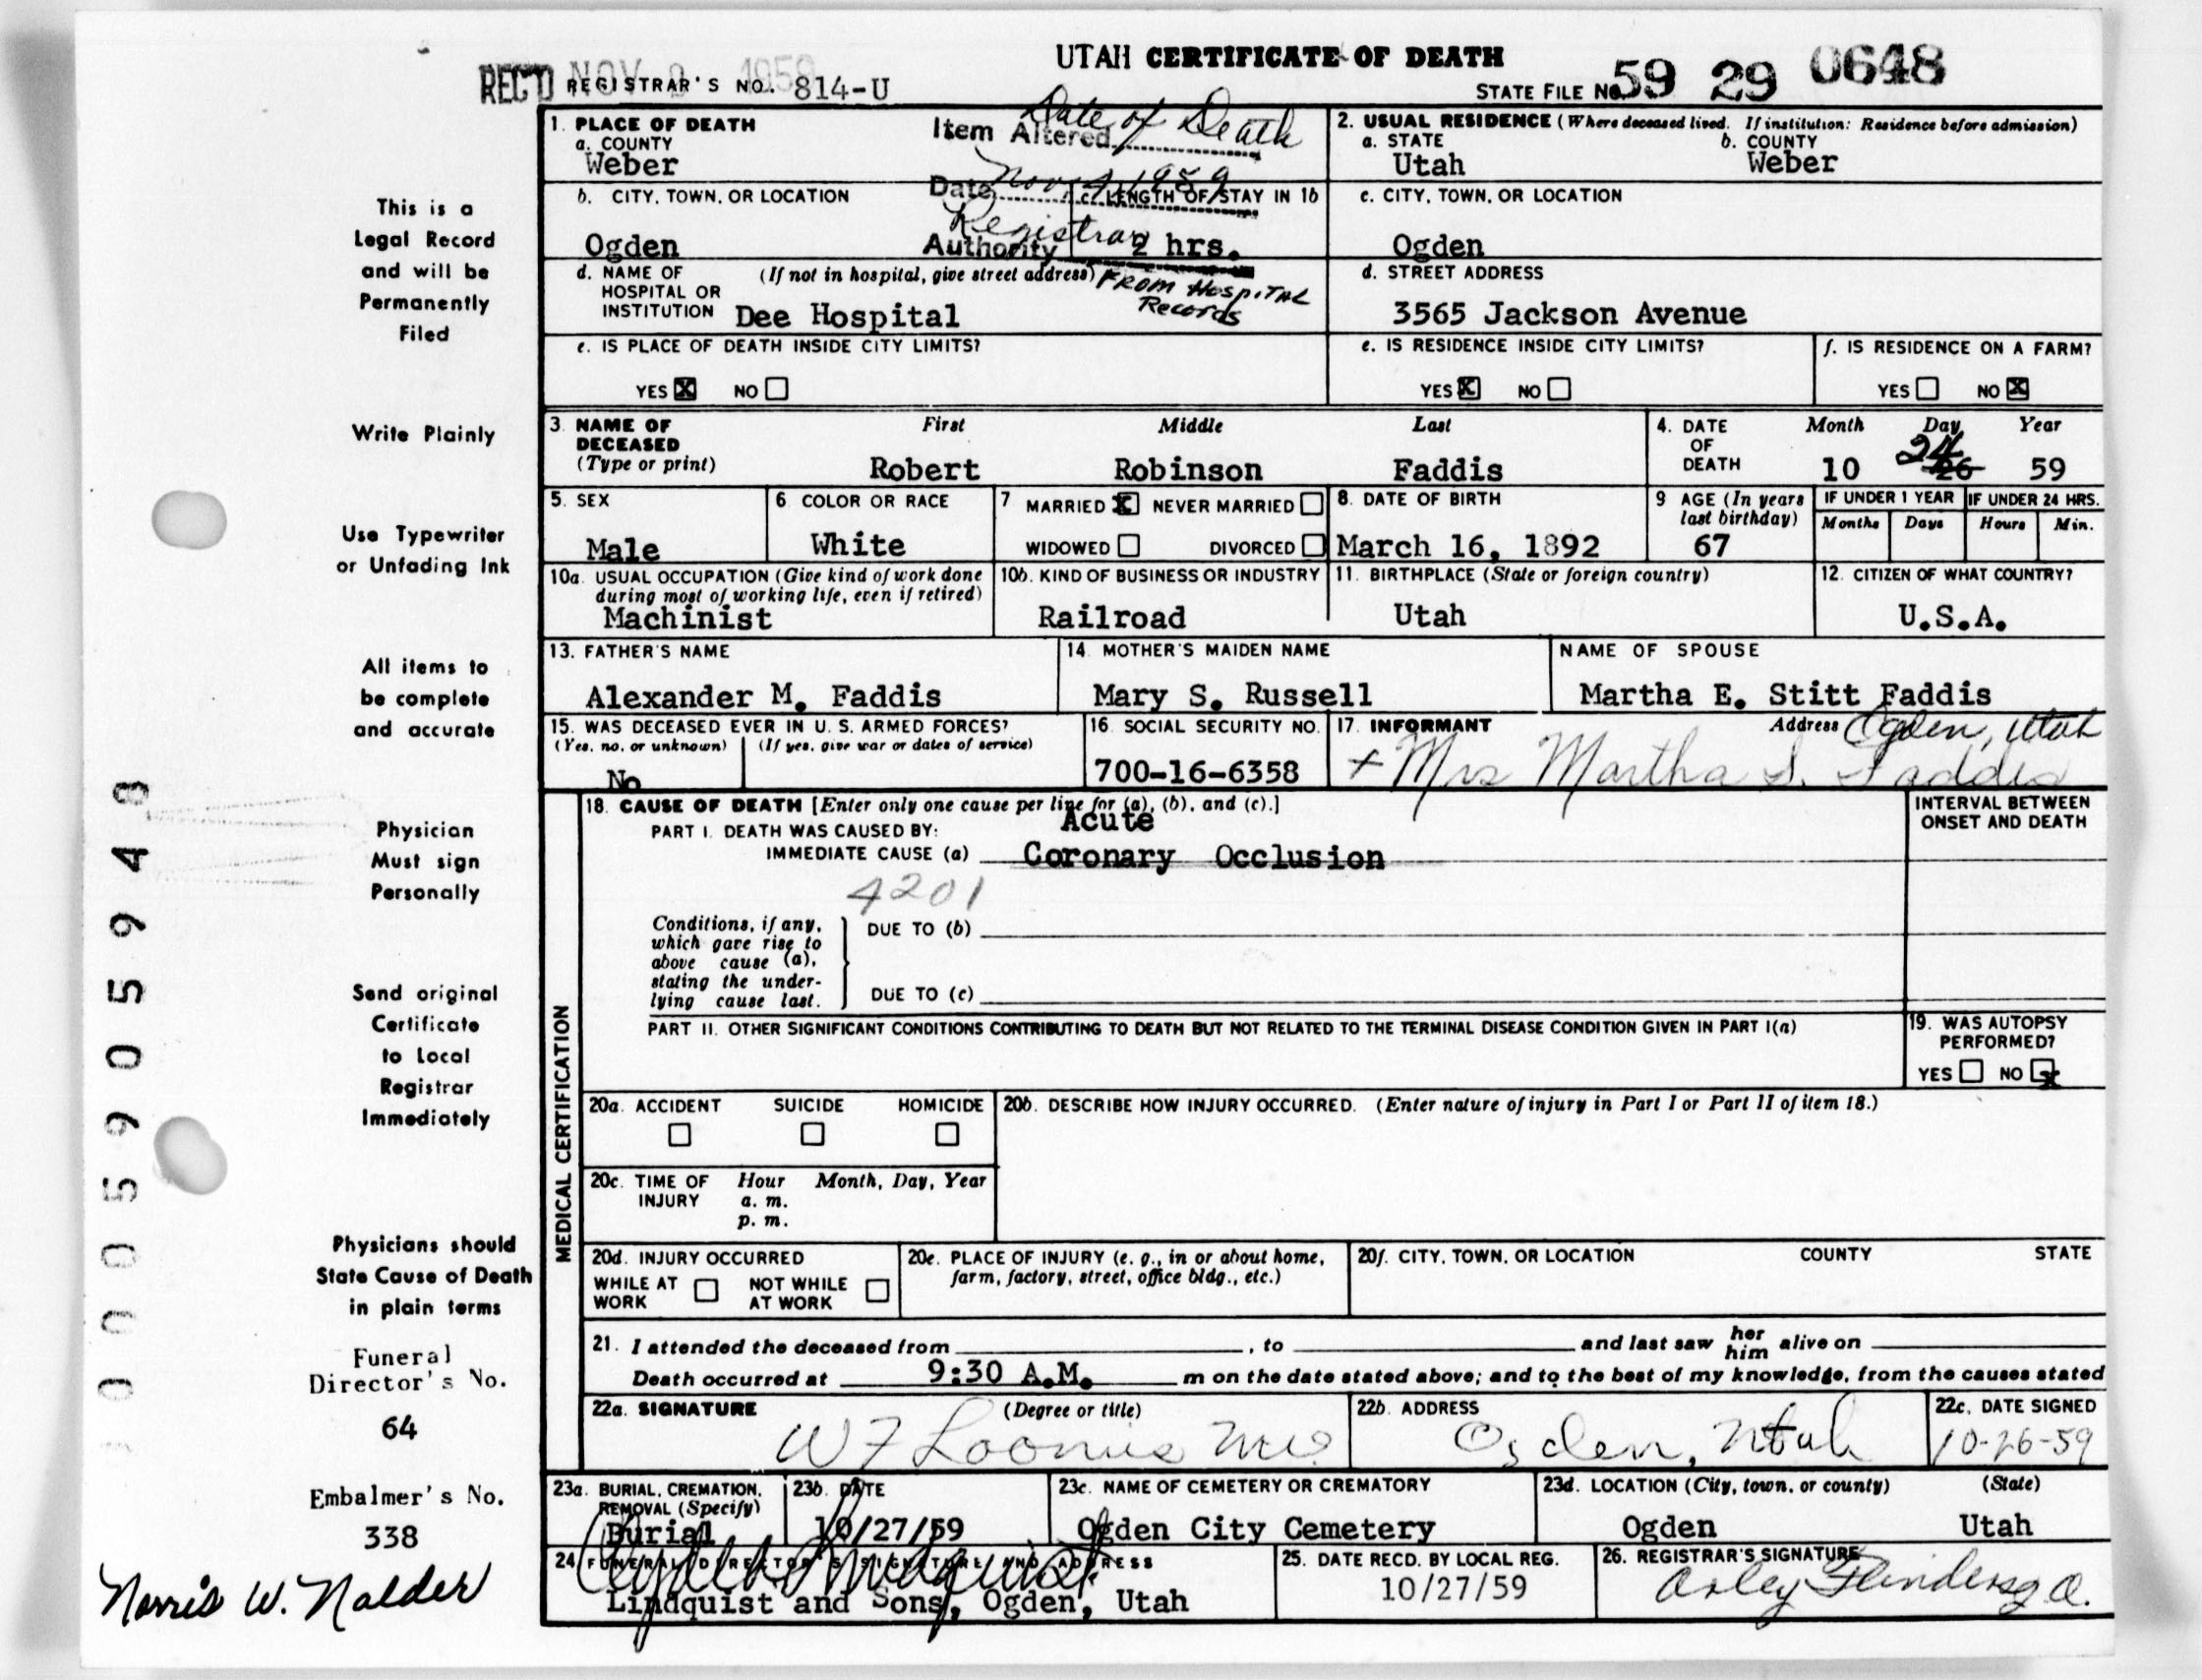 UTAH CERTIFICATE OF DEATH
REC'D NOV 2 1959 REGISTRAR'S NO. 814-U
STATE FILE NO. 59 29 0648
1. PLACE OF DEATH
a. COUNTY
Weber
Item Altered Date of Death
Date Nov 1959
Authority Registrar
FROM HOSPITAL Records
2. USUAL RESIDENCE (Where deceased lived. If institution: Residence before admission)
a. STATE b. COUNTY
Utah Weber
b. CITY, TOWN, OR LOCATION c. LENGTH OF STAY IN 1b
Ogden 2 hrs.
c. CITY, TOWN, OR LOCATION
Ogden
d. NAME OF HOSPITAL OR INSTITUTION (If not in hospital, give street address)
Dee Hospital
d. STREET ADDRESS
3565 Jackson Avenue
e. IS PLACE OF DEATH INSIDE CITY LIMITS?
YES X NO
e. IS RESIDENCE INSIDE CITY LIMITS?
YES X NO
f. IS RESIDENCE ON A FARM?
YES NO X
3. NAME OF DECEASED (Type or print) First Middle Last
Robert Robinson Faddis
4. DATE OF DEATH Month Day Year
10 24 26 59
5. SEX
Male
6. COLOR OR RACE
White
7 MARRIED X NEVER MARRIED
WIDOWED DIVORCED
8. DATE OF BIRTH
March 16, 1892
9 AGE (In years last birthday)
67
IF UNDER 1 YEAR IF UNDER 24 HRS.
Months Days Hours Min.
10a. USUAL OCCUPATION (Give kind of work done during most of working life, even if retired)
Machinist
10b. KIND OF BUSINESS OR INDUSTRY
Railroad
11. BIRTHPLACE (State or foreign country)
Utah
12. CITIZEN OF WHAT COUNTRY?
U.S.A.
13. FATHER'S NAME
Alexander M. Faddis
14. MOTHER'S MAIDEN NAME
Mary S. Russell
NAME OF SPOUSE
Martha E. Stitt Faddis
15. WAS DECEASED EVER IN U. S. ARMED FORCES?
(Yes, no, or unknown) (If yes, give war or dates of service)
No
16. SOCIAL SECURITY NO.
700-16-6358
17. INFORMANT Address Ogden, Utah
+ Mrs Martha S. Faddis
MEDICAL CERTIFICATION
18. CAUSE OF DEATH [Enter only one cause per line for (a), (b), and (c).]
PART I. DEATH WAS CAUSED BY: Acute
IMMEDIATE CAUSE (a) Coronary Occlusion
4201
INTERVAL BETWEEN ONSET AND DEATH
Conditions, if any, which gave rise to above cause (a), stating the underlying cause last.
DUE TO (b)
DUE TO (c)
PART II. OTHER SIGNIFICANT CONDITIONS CONTRIBUTING TO DEATH BUT NOT RELATED TO THE TERMINAL DISEASE CONDITION GIVEN IN PART I(a)
19. WAS AUTOPSY PERFORMED?
YES NO X
20a. ACCIDENT SUICIDE HOMICIDE
20b. DESCRIBE HOW INJURY OCCURRED. (Enter nature of injury in Part I or Part II of item 18.)
20c. TIME OF INJURY Hour Month, Day, Year
a. m.
p. m.
20d. INJURY OCCURRED
WHILE AT WORK NOT WHILE AT WORK
20e. PLACE OF INJURY (e. g., in or about home, farm, factory, street, office bldg., etc.)
20f. CITY, TOWN, OR LOCATION COUNTY STATE
21. I attended the deceased from , to and last saw her him alive on
Death occurred at 9:30 A.M. m on the date stated above; and to the best of my knowledge, from the causes stated
22a. SIGNATURE (Degree or title)
W F Loomis MD.
22b. ADDRESS
Ogden, Utah
22c. DATE SIGNED
10-26-59
23a. BURIAL, CREMATION, REMOVAL (Specify)
Burial
23b. DATE
10/27/59
23c. NAME OF CEMETERY OR CREMATORY
Ogden City Cemetery
23d. LOCATION (City, town, or county) (State)
Ogden Utah
24. FUNERAL DIRECTOR'S SIGNATURE AND ADDRESS
Lindquist and Sons, Ogden, Utah
25. DATE RECD. BY LOCAL REG.
10/27/59
26. REGISTRAR'S SIGNATURE
This is a
Legal Record
and will be
Permanently
Filed
Write Plainly
Use Typewriter
or Unfading Ink
All items to
be complete
and accurate
Physician
Must sign
Personally
Send original
Certificate
to Local
Registrar
Immediately
Physicians should
State Cause of Death
in plain terms
Funeral
Director's No.
64
Embalmer's No.
338
Norris W. Nalder
0005905948